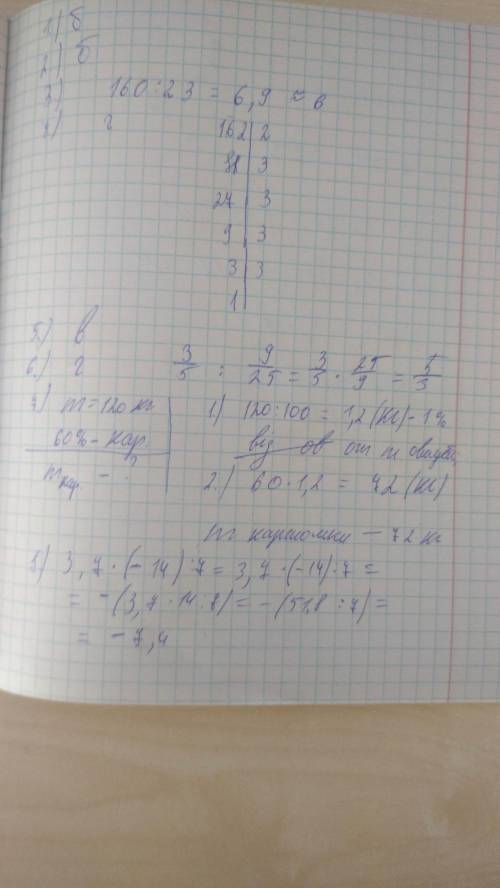 1) б
2) б
3) 160 : 23 = 6,9 ≈ в
4) г
162 | 2
81 | 3
27 | 3
9 | 3
3 | 3
1
5) в
6) г 3/5 : 9/25 = 3/5 · 25/9 = 5/3
7) m = 120 кг
60% – кар.
m кар. – ?
1) 120 : 100 = 1,2 (кг) – 1%
2) 60 · 1,2 = 72 (кг)
m картошки – 72 кг
8) 3,7 · (– 14) : 7 = 3,7 · (–14) : 7 =
= –(3,7 · 14 : 7) = –(51,8 : 7) =
= – 7,4